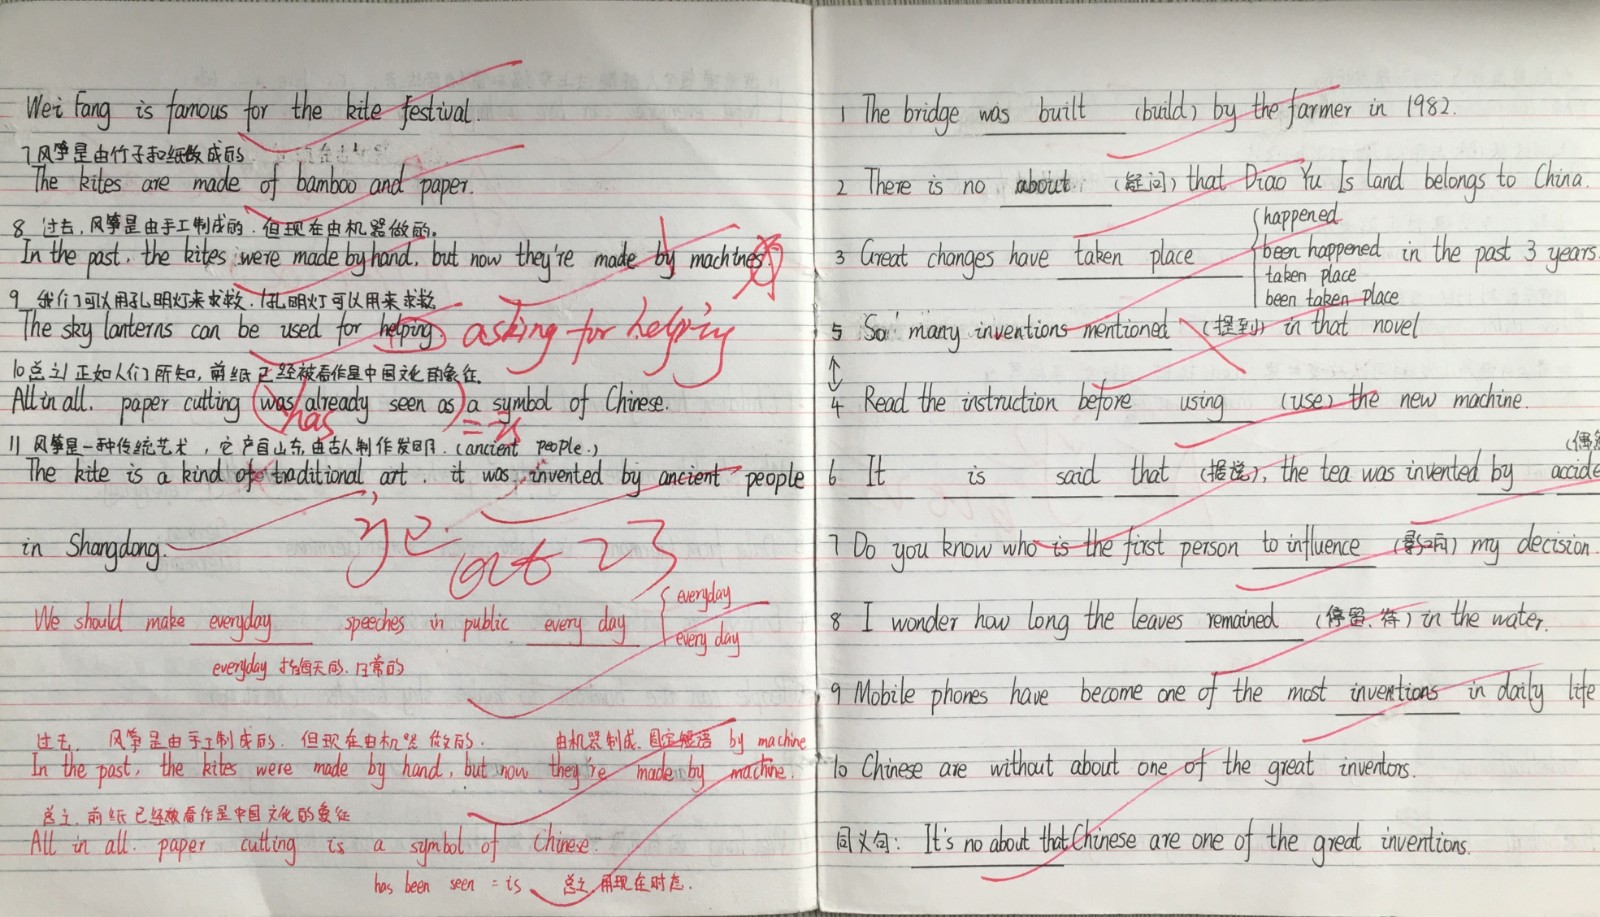 Wei Fang is famous for the kite festival.
7 风筝是由竹子和纸做成的
The kites are made of bamboo and paper.
8 过去,风筝是由手工制成的.但现在由机器做的。
In the past, the kites were made by hand, but now they're made by machines
9 我们可以用孔明灯来求救. 孔明灯可以用来求救
The sky lanterns can be used for helping asking for helping
10 总之 正如人们所知,剪纸已经被看作是中国文化的象征.
All in all. paper cutting (was already seen as) a symbol of Chinese.
has = is
11 风筝是一种传统艺术,它产自山东,由古人制作发明.(ancient people.)
The kite is a kind of traditional art. it was invented by ancient people
in Shangdong.
We should make everyday speeches in public every day
everyday
every day
everyday 指每天的.日常的
过去. 风筝是由手工制成的. 但现在由机器做的. 由机器制成.固定短语 by machine
In the past, the kites were made by hand, but now they're made by machine.
总之.剪纸已经被看作是中国文化的象征
All in all. paper cutting is a symbol of Chinese.
has been seen = is 总之 用现在时态.
1 The bridge was built (build) by the farmer in 1982.
2 There is no about (疑问) that Diao Yu Is land belongs to China.
happened
3 Great changes have taken place been happened in the past 3 years.
taken place
been taken place
5 So many inventions mentioned (提到) in that novel
4 Read the instruction before using (use) the new machine.
(偶
6 It is said that (据说), the tea was invented by accide
7 Do you know who is the first person to influence (影响) my decision.
8 I wonder how long the leaves remained (停留.待) in the water.
9 Mobile phones have become one of the most inventions in daily life
10 Chinese are without about one of the great inventors.
同义句: It's no about that Chinese are one of the great inventions.